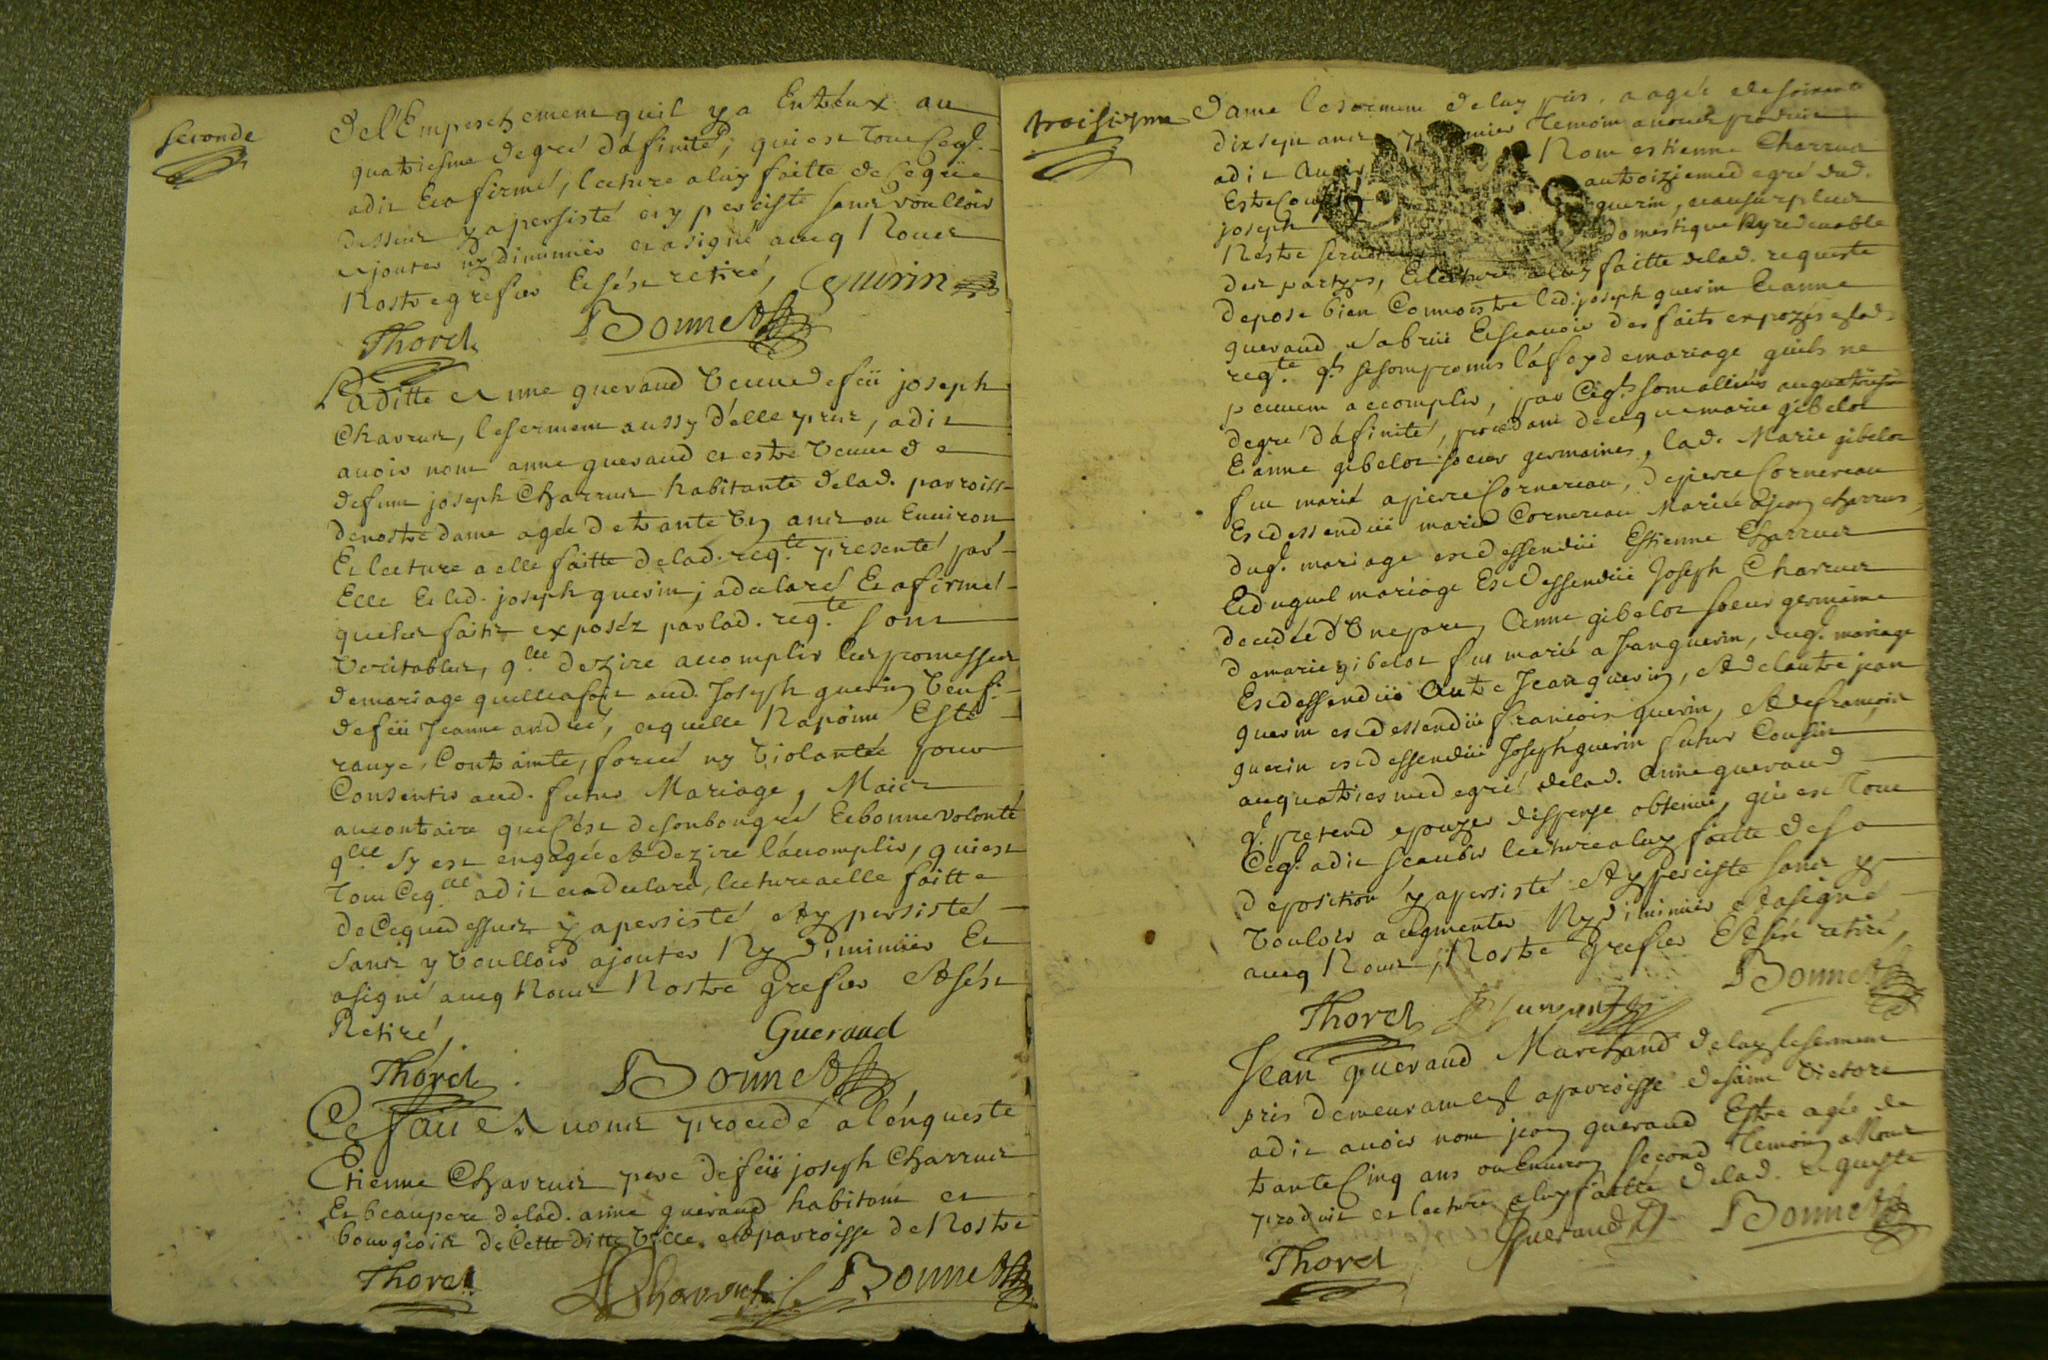 seconde
de l'Empeschement quil ya Entéux au
quatriesme degré dáfinité, qui est tout ceq.
a dit Et afirmé, lecture a luy faitte de ce que
dessus y a persisté et y perciste sans voulloir
ajouter ny diminuër et a signé aueq Nous
Nostre grefier Et sést retiré, Guerin
Thorel Bonnet
Laditte Anne gueraud Veuue de feü joseph
Charruer, le serment aussy d'elle pris, a dit
auoir nom anne gueraud et estre Veuue de
defunt joseph Charruer habitante de lad. parroisse
de nostre dame agée de trante un ans ou Enuiron
Et lecture a elle faitte de lad. reqte. presenté par
Elle Et led. joseph guerin, a declaré Et afirmé
que les faits exposéz par lad. reqte. sont
Veritables, qlle dezire accomplir les promesses
de mariage quelle a fait aud. Joseph guerin Veuf
de feü Jeanne andreé, et quelle Na point Esté
Contrainte, forcé ny Violantée pour
Consentir aud. futur Mariage, Mais
au contraire que cést de son bon gré Et bonne volonté
qlle sy est engagée Et dezire lácomplir, qui est
tout ceqlle a dit et a declaré, lecture a elle faitte
de ce que dessus y a persisté Et y persiste
sans y voulloir ajouter Ny diminuër Et
a signé aueq Nous Nostre grefier Et sést
Retiré,
Gueraud
Thorel Bonnet
Ce fait Auons procedé a lénqueste
Etienne Charruer pere de feü joseph Charruer
Et beaupere de lad. anne gueraud habitant et
bourgeois de Cette ditte Ville Et parroisse de Nostre
Thorel Bonnet
troisiesme
Dame le serment de luy pris, a agée de soixante
dix sept ans premier temoin a nous produit
a dit auoir Nom estienne Charruer
Estre Cousin au troiziesme degré dud.
joseph guerin, au surplus
Nestre seruiteur domestique Ny redeuable
des partyes, Et lecture a luy faitte de lad. requeste
depose bien Connoistre led. joseph guerin Et anne
gueraud Et scauoir des faits expozés
reqte. qls se sont promis la foy de mariage quils ne
peuuent accomplir, par ceqls sont alliés au quatriesme
degré dáfinité, procedant de ce que marie gibelot
Et anne gibelot soeurs germaines, lad. Marie gibelot
fut marié a pierre Cornereau, de pierre Cornereau
Est dessendüe marie Cornereau Mariée a jean Charruer,
duq. mariage est dessendüe Estienne Charruer
Et duquel mariage Est dessendüe Joseph Charruer
decédé d'Une part, Anne gibelot soeur germaine
de marie gibelot fut marié a jean guerin, duq. mariage
Est dessendüe autre Jean guerin, Et de lautre jean
guerin est dessendüe francois guerin, Et de francois
guerin est dessendüe Joseph guerin futur Cousin
au quatriesme degré de lad. Anne gueraud
ql pretend epouzer dispense obtenüe, qui est tout
ceql a dit scauoir lecture a luy faitte de sa
deposition y a persisté Et y perciste sans y
vouloir augmenter Ny diminuër Et a signé
aueq Nous, Nostre grefier Et sést retiré,
Thorel Bonnet
Jean gueraud Marchand de luy le serment
pris demeurant parroisse de saint Victore
a dit auoir nom jean gueraud Estre agée de
trante Cinq ans ou Enuiron second temoin a Nous
produit et lecture a luy faitte de lad. requeste
Thorel Gueraud Bonnet